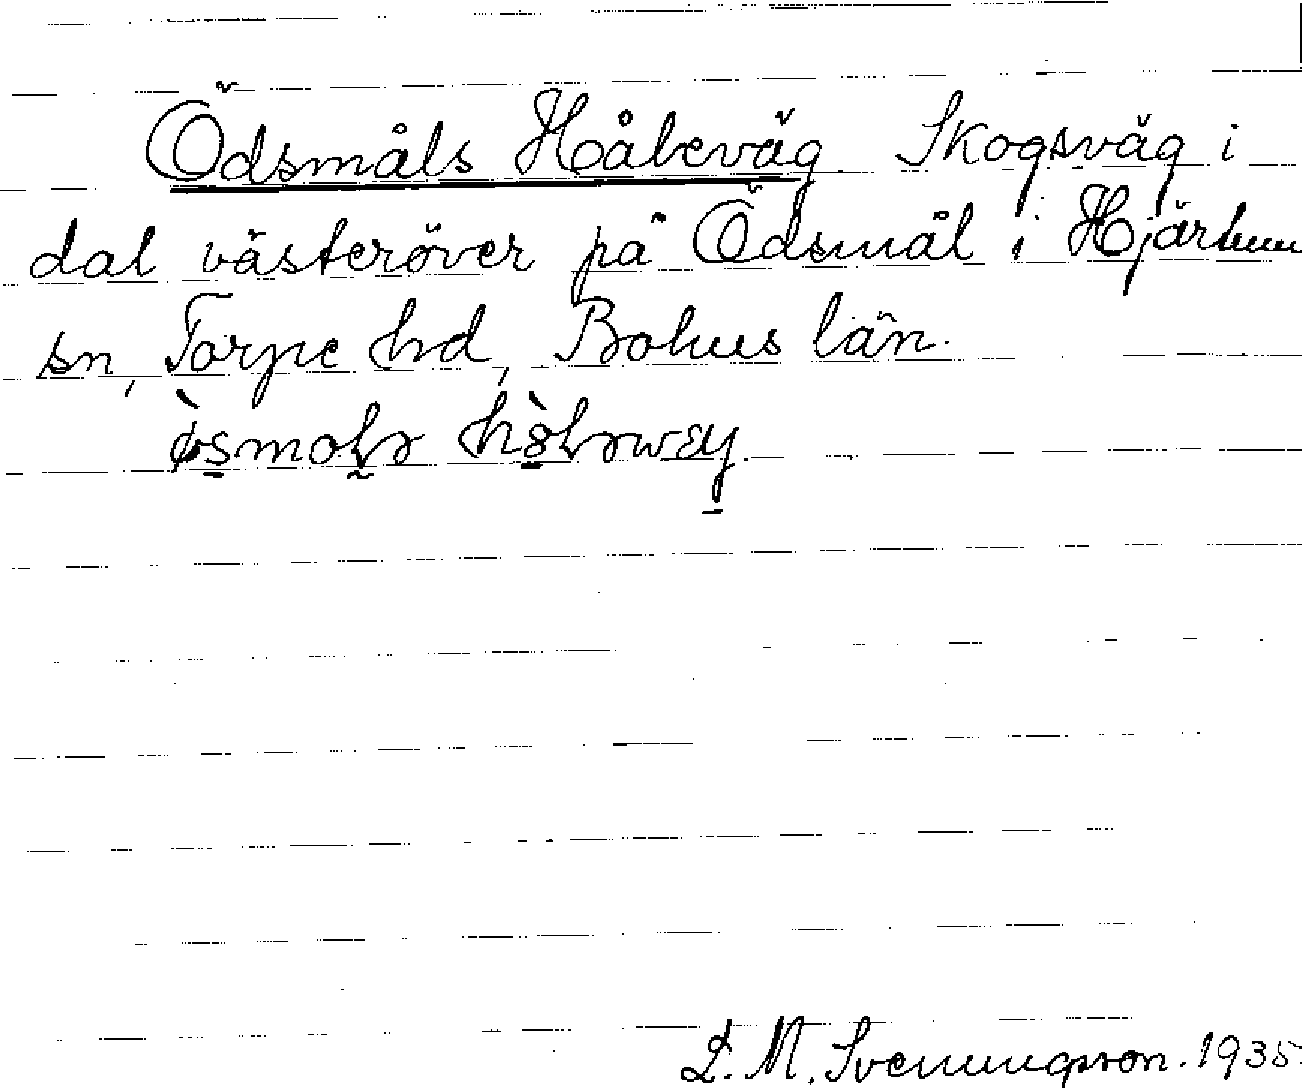 Ödsmåls Håleväg Skogsväg i
dal västeröver på Ödsmål i Hjärtum
sn, Torpe hd, Bohus län.
L. M. Svenungsson. 1935.